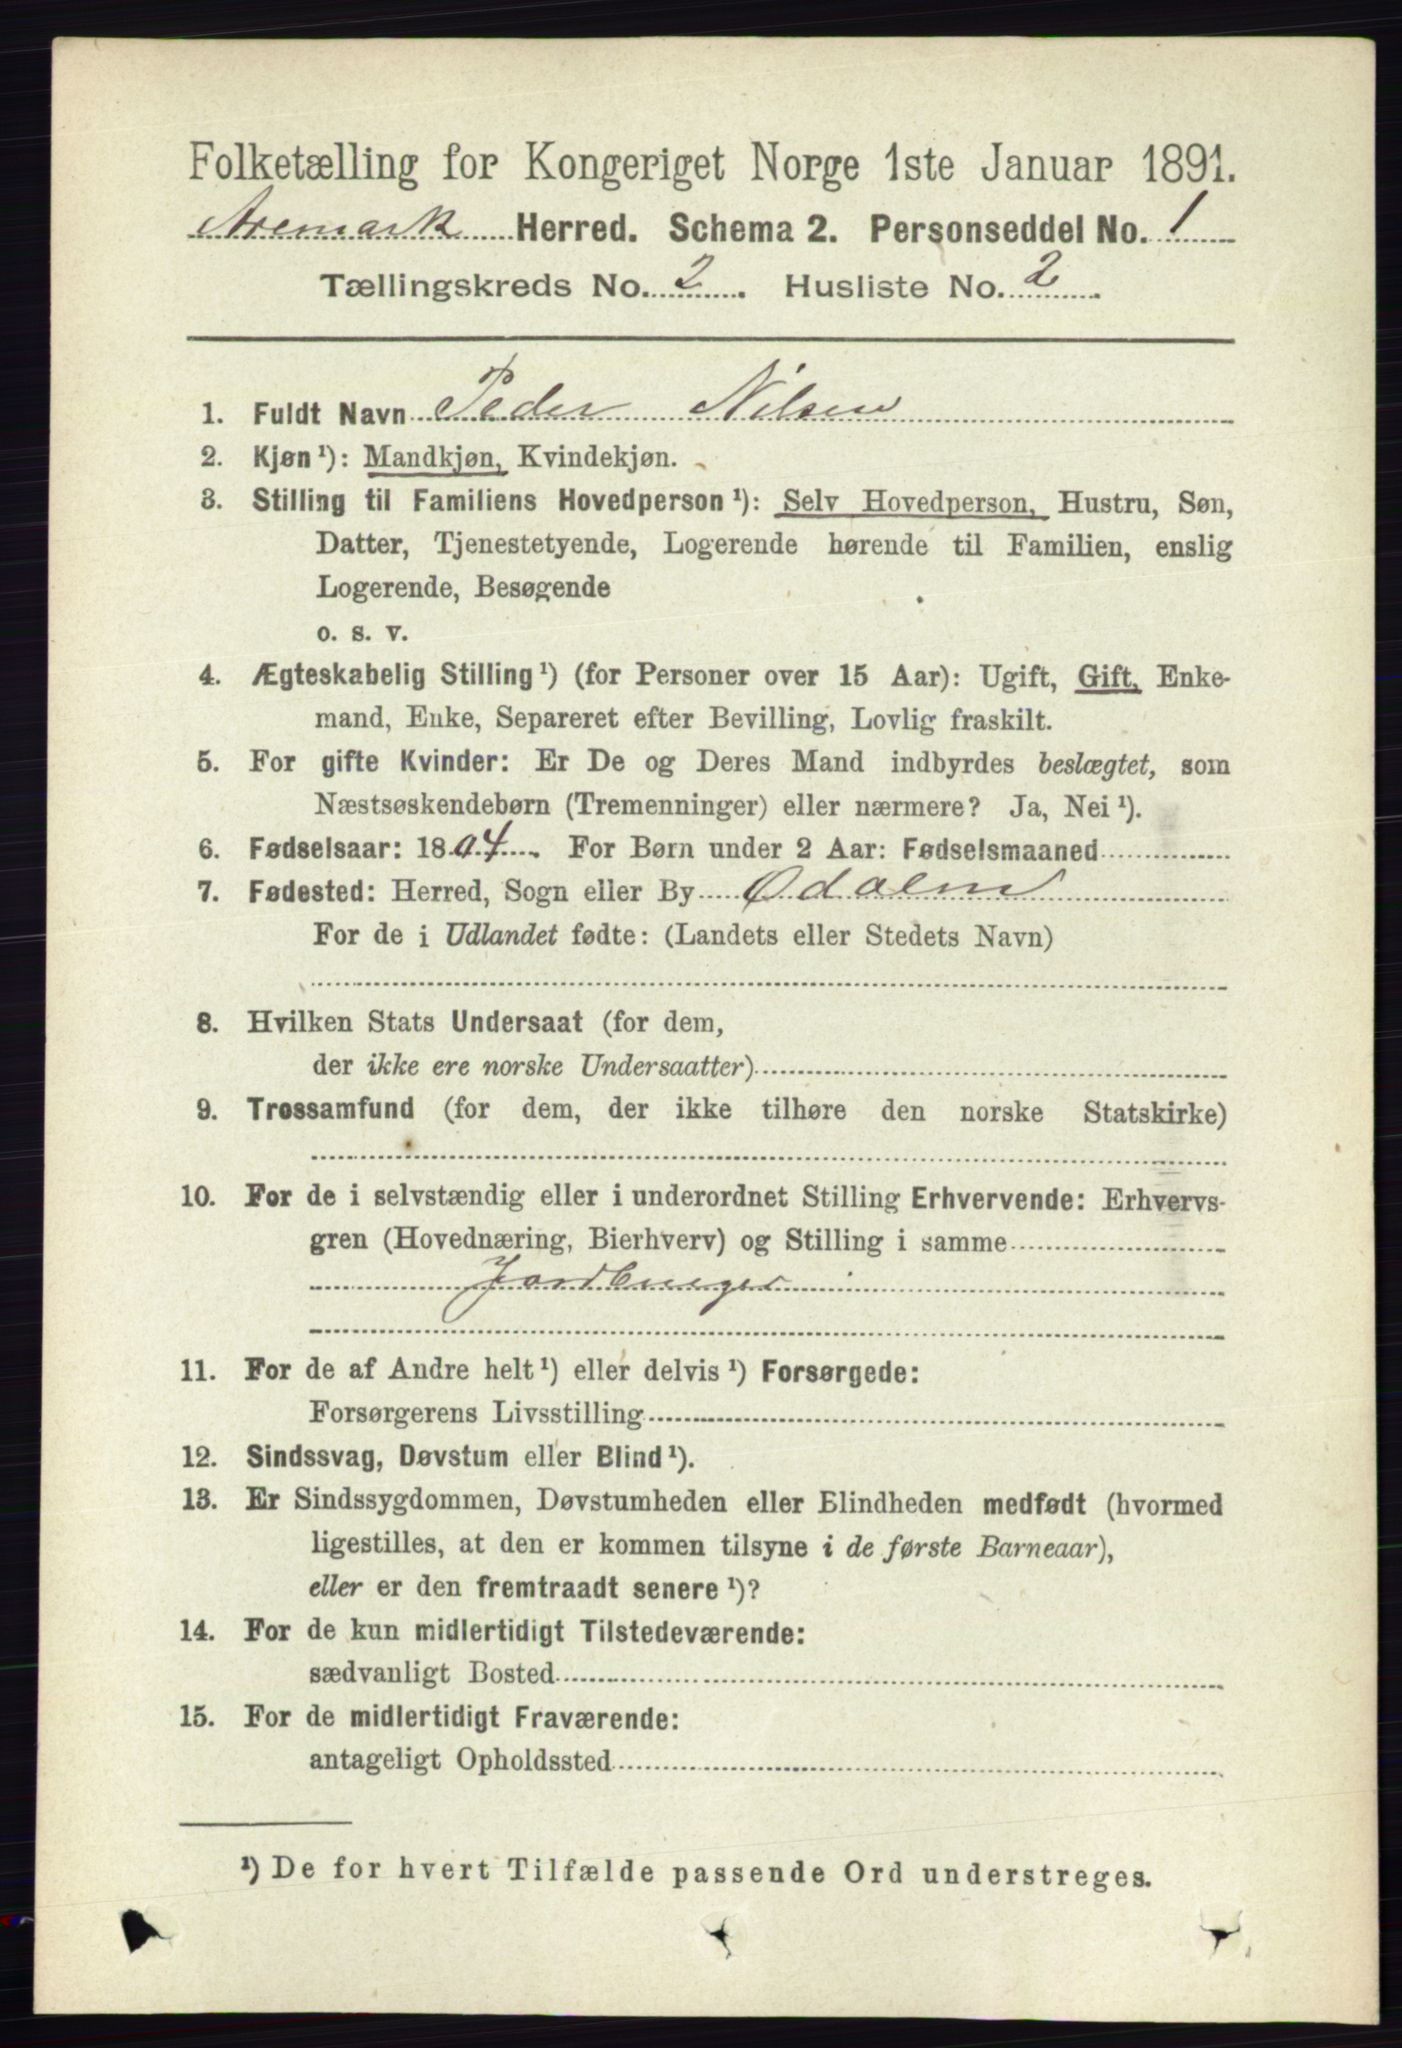 Folketælling for Kongeriget Norge 1ste Januar 1891.
Aremark Herred. Schema 2. Personseddel No. 1
Tællingskreds No. 2. Husliste No. 2.
1. Fuldt Navn Peder Nilsen
2. Kjøn¹): Mandkjøn, Kvindekjøn.
3. Stilling til Familiens Hovedperson¹): Selv Hovedperson, Hustru, Søn,
Datter, Tjenestetyende, Logerende hørende til Familien, enslig
Logerende, Besøgende
o. s. v.
4. Ægteskabelig Stilling¹) (for Personer over 15 Aar): Ugift, Gift, Enke-
mand, Enke, Separeret efter Bevilling, Lovlig fraskilt.
5. For gifte Kvinder: Er De og Deres Mand indbyrdes beslægtet, som
Næstsøskendebørn (Tremenninger) eller nærmere? Ja, Nei¹).
6. Fødselsaar: 1804. For Børn under 2 Aar: Fødselsmaaned
7. Fødested: Herred, Sogn eller By Ødalen
For de i Udlandet fødte: (Landets eller Stedets Navn)
8. Hvilken Stats Undersaat (for dem,
der ikke ere norske Undersaatter)
9. Trossamfund (for dem, der ikke tilhøre den norske Statskirke)
10. For de i selvstændig eller i underordnet Stilling Erhvervende: Erhvervs-
gren (Hovednæring, Bierhverv) og Stilling i samme
Jordbruger
11. For de af Andre helt¹) eller delvis¹) Forsørgede:
Forsørgerens Livsstilling
12. Sindssvag, Døvstum eller Blind¹).
13. Er Sindssygdommen, Døvstumheden eller Blindheden medfødt (hvormed
ligestilles, at den er kommen tilsyne i de første Barneaar),
eller er den fremtraadt senere¹)?
14. For de kun midlertidigt Tilstedeværende:
sædvanligt Bosted
15. For de midlertidigt Fraværende:
antageligt Opholdssted
¹) De for hvert Tilfælde passende Ord understreges.